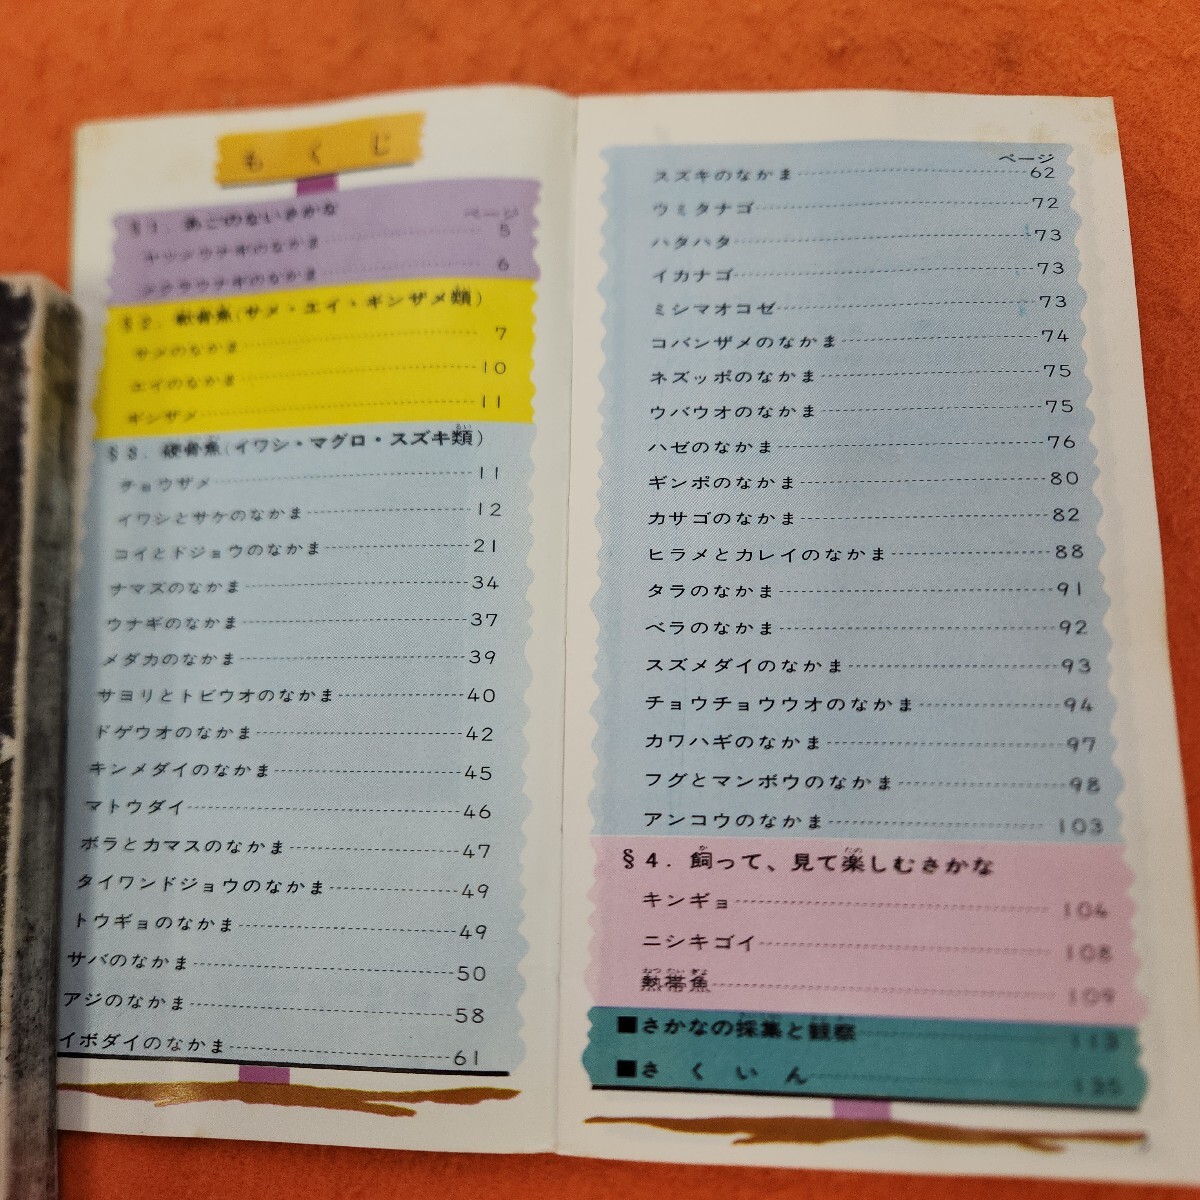 もくじ
§1. あごのないさかな
ページ
ヤツメウナギのなかま 5
メクラウナギのなかま 6
§2. 軟骨魚(サメ・エイ・ギンザメ類)
サメのなかま 7
エイのなかま 10
ギンザメ 11
§3. 硬骨魚(イワシ・マグロ・スズキ類)
チョウザメ 11
イワシとサケのなかま 12
コイとドジョウのなかま 21
ナマズのなかま 34
ウナギのなかま 37
メダカのなかま 39
サヨリとトビウオのなかま 40
トゲウオのなかま 42
キンメダイのなかま 45
マトウダイ 46
ボラとカマスのなかま 47
タイワンドジョウのなかま 49
トウギョのなかま 49
サバのなかま 50
アジのなかま 58
イボダイのなかま 61
ページ
スズキのなかま 62
ウミタナゴ 72
ハタハタ 73
イカナゴ 73
ミシマオコゼ 73
コバンザメのなかま 74
ネズッポのなかま 75
ウバウオのなかま 75
ハゼのなかま 76
ギンポのなかま 80
カサゴのなかま 82
ヒラメとカレイのなかま 88
タラのなかま 91
ベラのなかま 92
スズメダイのなかま 93
チョウチョウウオのなかま 94
カワハギのなかま 97
フグとマンボウのなかま 98
アンコウのなかま 103
§4. 飼って、見て楽しむさかな
キンギョ 104
ニシキゴイ 108
熱帯魚 109
■さかなの採集と観察 113
■さくいん 135